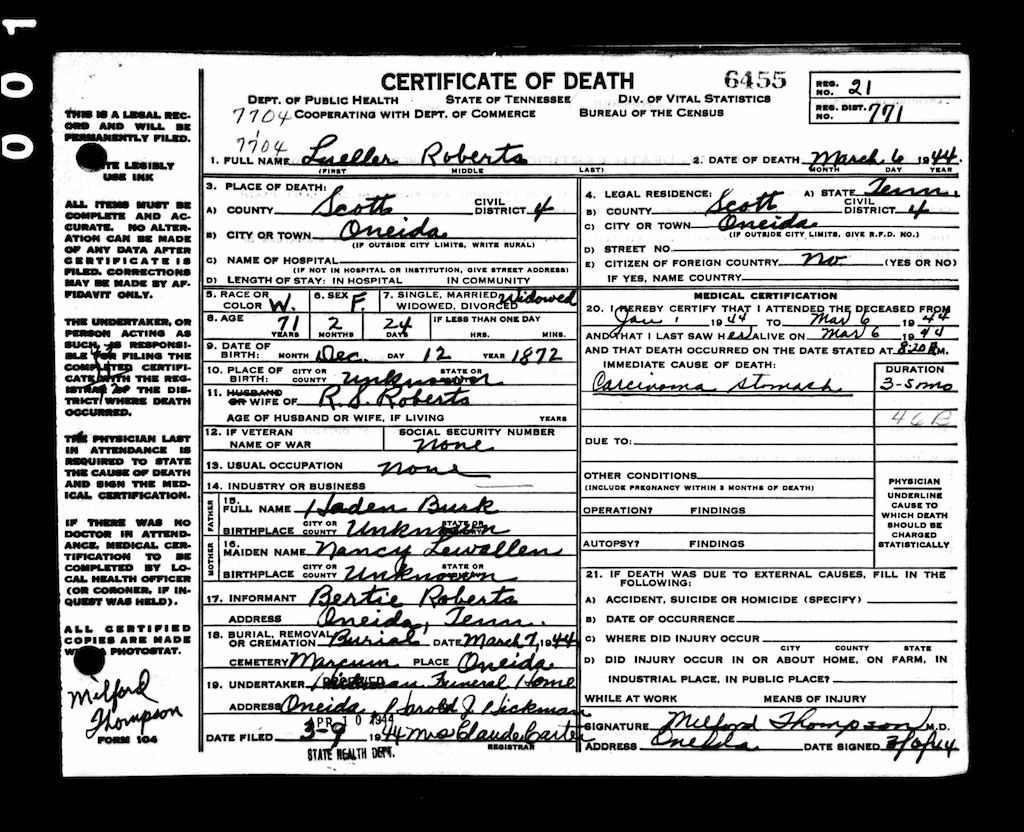 001
CERTIFICATE OF DEATH 6455
REG. NO. 21
DEPT. OF PUBLIC HEALTH STATE OF TENNESSEE DIV. OF VITAL STATISTICS
REG. DIST. NO. 771
7704 COOPERATING WITH DEPT. OF COMMERCE BUREAU OF THE CENSUS
7704
1. FULL NAME Lueller Roberts 2. DATE OF DEATH March 6 1944.
(FIRST) MIDDLE LAST) MONTH DAY YEAR
THIS IS A LEGAL RECORD AND WILL BE PERMANENTLY FILED.
LEGIBLY
USE INK
ALL ITEMS MUST BE
COMPLETE AND AC-
CURATE. NO ALTER-
ATION CAN BE MADE
OF ANY DATA AFTER
CERTIFICATE IS
FILED. CORRECTIONS
MAY BE MADE BY AF-
FIDAVIT ONLY.
THE UNDERTAKER, OR
PERSON ACTING AS
SUCH, IS RESPONSI-
BLE FOR FILING THE
COMPLETED CERTIFI-
CATE WITH THE REG-
ISTRAR OF THE DIS-
TRICT WHERE DEATH
OCCURRED.
THE PHYSICIAN LAST
IN ATTENDANCE IS
REQUIRED TO STATE
THE CAUSE OF DEATH
AND SIGN THE MED-
ICAL CERTIFICATION.
IF THERE WAS NO
DOCTOR IN ATTEND-
ANCE, MEDICAL CER-
TIFICATION TO BE
COMPLETED BY LO-
CAL HEALTH OFFICER
(OR CORONER, IF IN-
QUEST WAS HELD).
ALL CERTIFIED
COPIES ARE MADE
PHOTOSTAT.
Milford
Thompson
FORM 104
3. PLACE OF DEATH:
A) COUNTY Scott CIVIL DISTRICT 4
B) CITY OR TOWN Oneida
(IF OUTSIDE CITY LIMITS, WRITE RURAL)
C) NAME OF HOSPITAL
(IF NOT IN HOSPITAL OR INSTITUTION, GIVE STREET ADDRESS)
D) LENGTH OF STAY: IN HOSPITAL IN COMMUNITY
5. RACE OR COLOR W. 6. SEX F. 7. SINGLE, MARRIED, WIDOWED, DIVORCED Widowed
8. AGE 71 YEARS 2 MONTHS 24 DAYS IF LESS THAN ONE DAY HRS. MINS.
9. DATE OF BIRTH: MONTH Dec. DAY 12 YEAR 1872
10. PLACE OF BIRTH: CITY OR COUNTY STATE OR Unknown
11. HUSBAND OR WIFE OF R.S. Roberts
AGE OF HUSBAND OR WIFE, IF LIVING YEARS
12. IF VETERAN NAME OF WAR SOCIAL SECURITY NUMBER none
13. USUAL OCCUPATION none
14. INDUSTRY OR BUSINESS
FATHER 15. FULL NAME Haden Burk
BIRTHPLACE CITY OR COUNTY STATE OR Unknown
MOTHER 16. MAIDEN NAME Nancy Lewallen
BIRTHPLACE CITY OR COUNTY STATE OR Unknown
17. INFORMANT Bertie Roberts
ADDRESS Oneida, Tenn.
18. BURIAL, REMOVAL OR CREMATION Burial DATE March 7, 1944
CEMETERY Marcum PLACE Oneida
19. UNDERTAKER Funeral Home
RECEIVED
ADDRESS Oneida, Harold J. Hickman
APR 10 1944
DATE FILED 3-9 1944 Mrs Claude Carter
REGISTRAR
STATE HEALTH DEPT.
4. LEGAL RESIDENCE: A) STATE Tenn.
B) COUNTY Scott CIVIL DISTRICT 4
C) CITY OR TOWN Oneida
(IF OUTSIDE CITY LIMITS, GIVE R.F.D. NO.)
D) STREET NO.
E) CITIZEN OF FOREIGN COUNTRY No. (YES OR NO)
IF YES, NAME COUNTRY
MEDICAL CERTIFICATION
20. I HEREBY CERTIFY THAT I ATTENDED THE DECEASED FROM
Jan 1 1944 TO Mar 6 1944
AND THAT I LAST SAW her ALIVE ON Mar 6 1944
AND THAT DEATH OCCURRED ON THE DATE STATED AT 8:20 P.M.
IMMEDIATE CAUSE OF DEATH: DURATION
Carcinoma Stomach 3-5 mo
46B
DUE TO:
OTHER CONDITIONS
(INCLUDE PREGNANCY WITHIN 3 MONTHS OF DEATH)
OPERATION? FINDINGS
AUTOPSY? FINDINGS
PHYSICIAN
UNDERLINE
CAUSE TO
WHICH DEATH
SHOULD BE
CHARGED
STATISTICALLY
21. IF DEATH WAS DUE TO EXTERNAL CAUSES, FILL IN THE
FOLLOWING:
A) ACCIDENT, SUICIDE OR HOMICIDE (SPECIFY)
B) DATE OF OCCURRENCE
C) WHERE DID INJURY OCCUR
CITY COUNTY STATE
D) DID INJURY OCCUR IN OR ABOUT HOME, ON FARM, IN
INDUSTRIAL PLACE, IN PUBLIC PLACE?
WHILE AT WORK MEANS OF INJURY
SIGNATURE Milford Thompson M.D.
ADDRESS Oneida DATE SIGNED